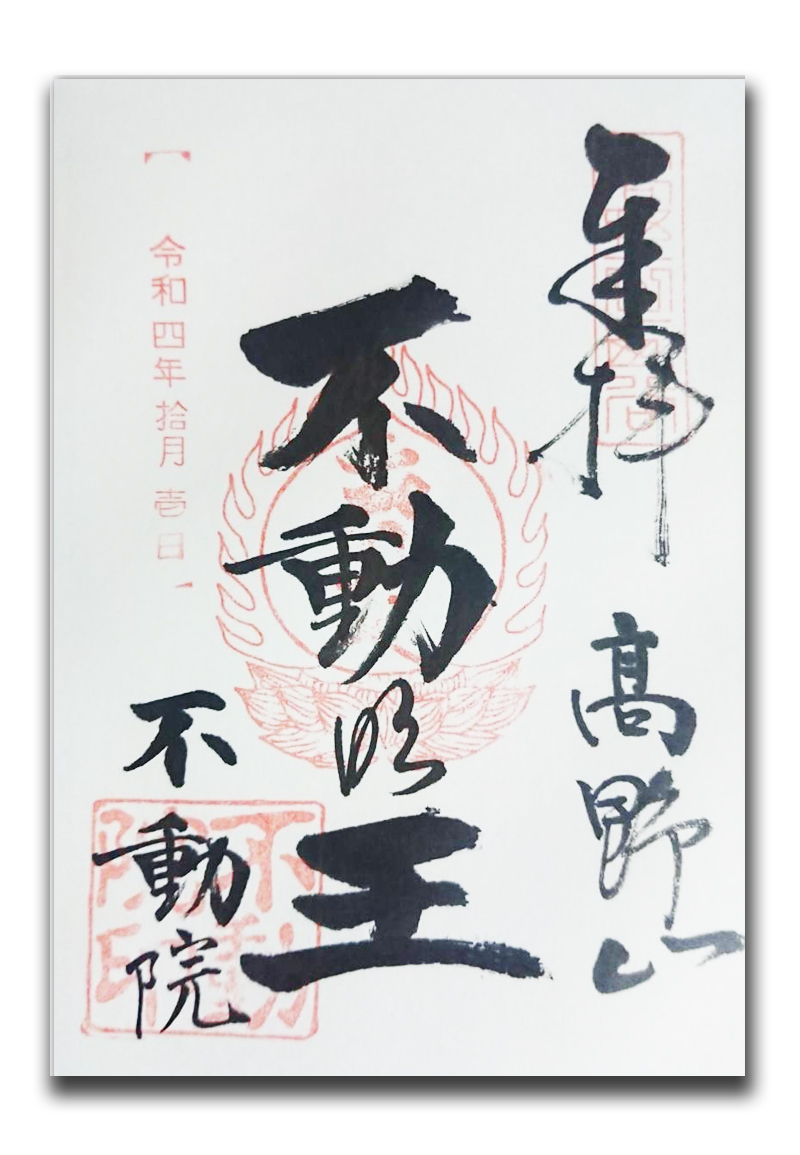 奉拝 高野山
不動明王
令和四年拾月壱日
不動院
不動院印